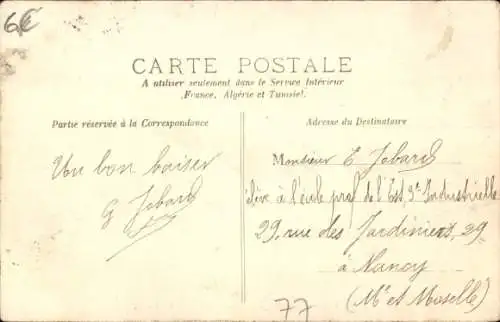 6€
CARTE POSTALE
A utiliser seulement dans le Service Intérieur
(France, Algérie et Tunisie).
Partie réservée à la Correspondance
Adresse du Destinataire
Un bon baiser
G Jobard
Monsieur E Jobard
élève à l'école prof de l'Est Son Industrielle
29, rue des Jardiniers, 29
à Nancy
(Mthe et Moselle)
77